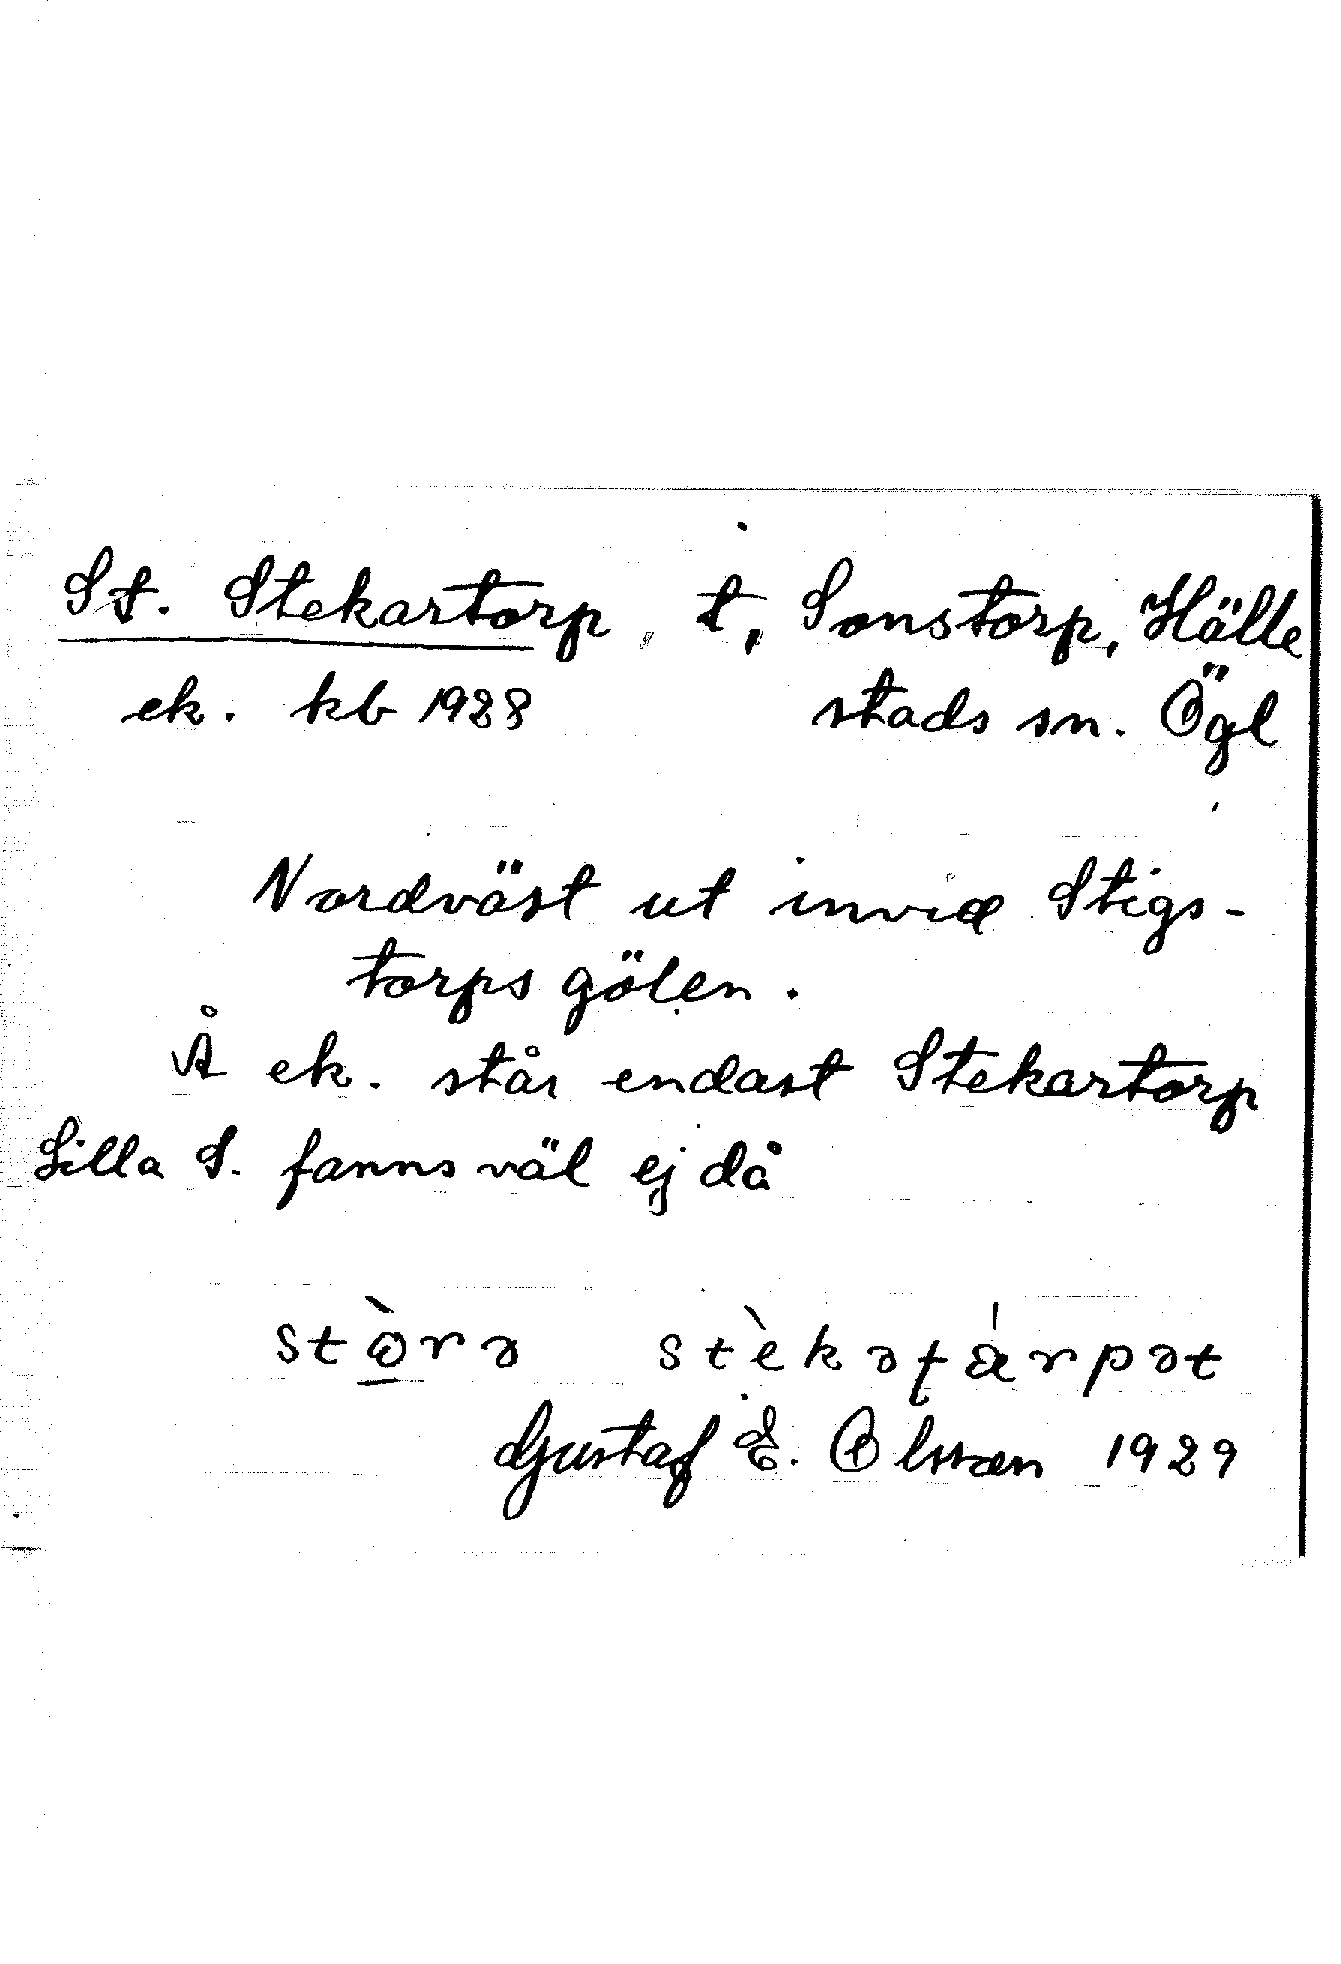 St. Stekartorp, t, Sonstorp, Hälle
ek. kb 1928 stads sn. Ögl
Nordväst ut invid Stigs-
torps gölen.
Å ek. står endast Stekartorp
Lilla S. fanns väl ej då
stòrə stèkəʈárpət
Gustaf E. Olsson 1929